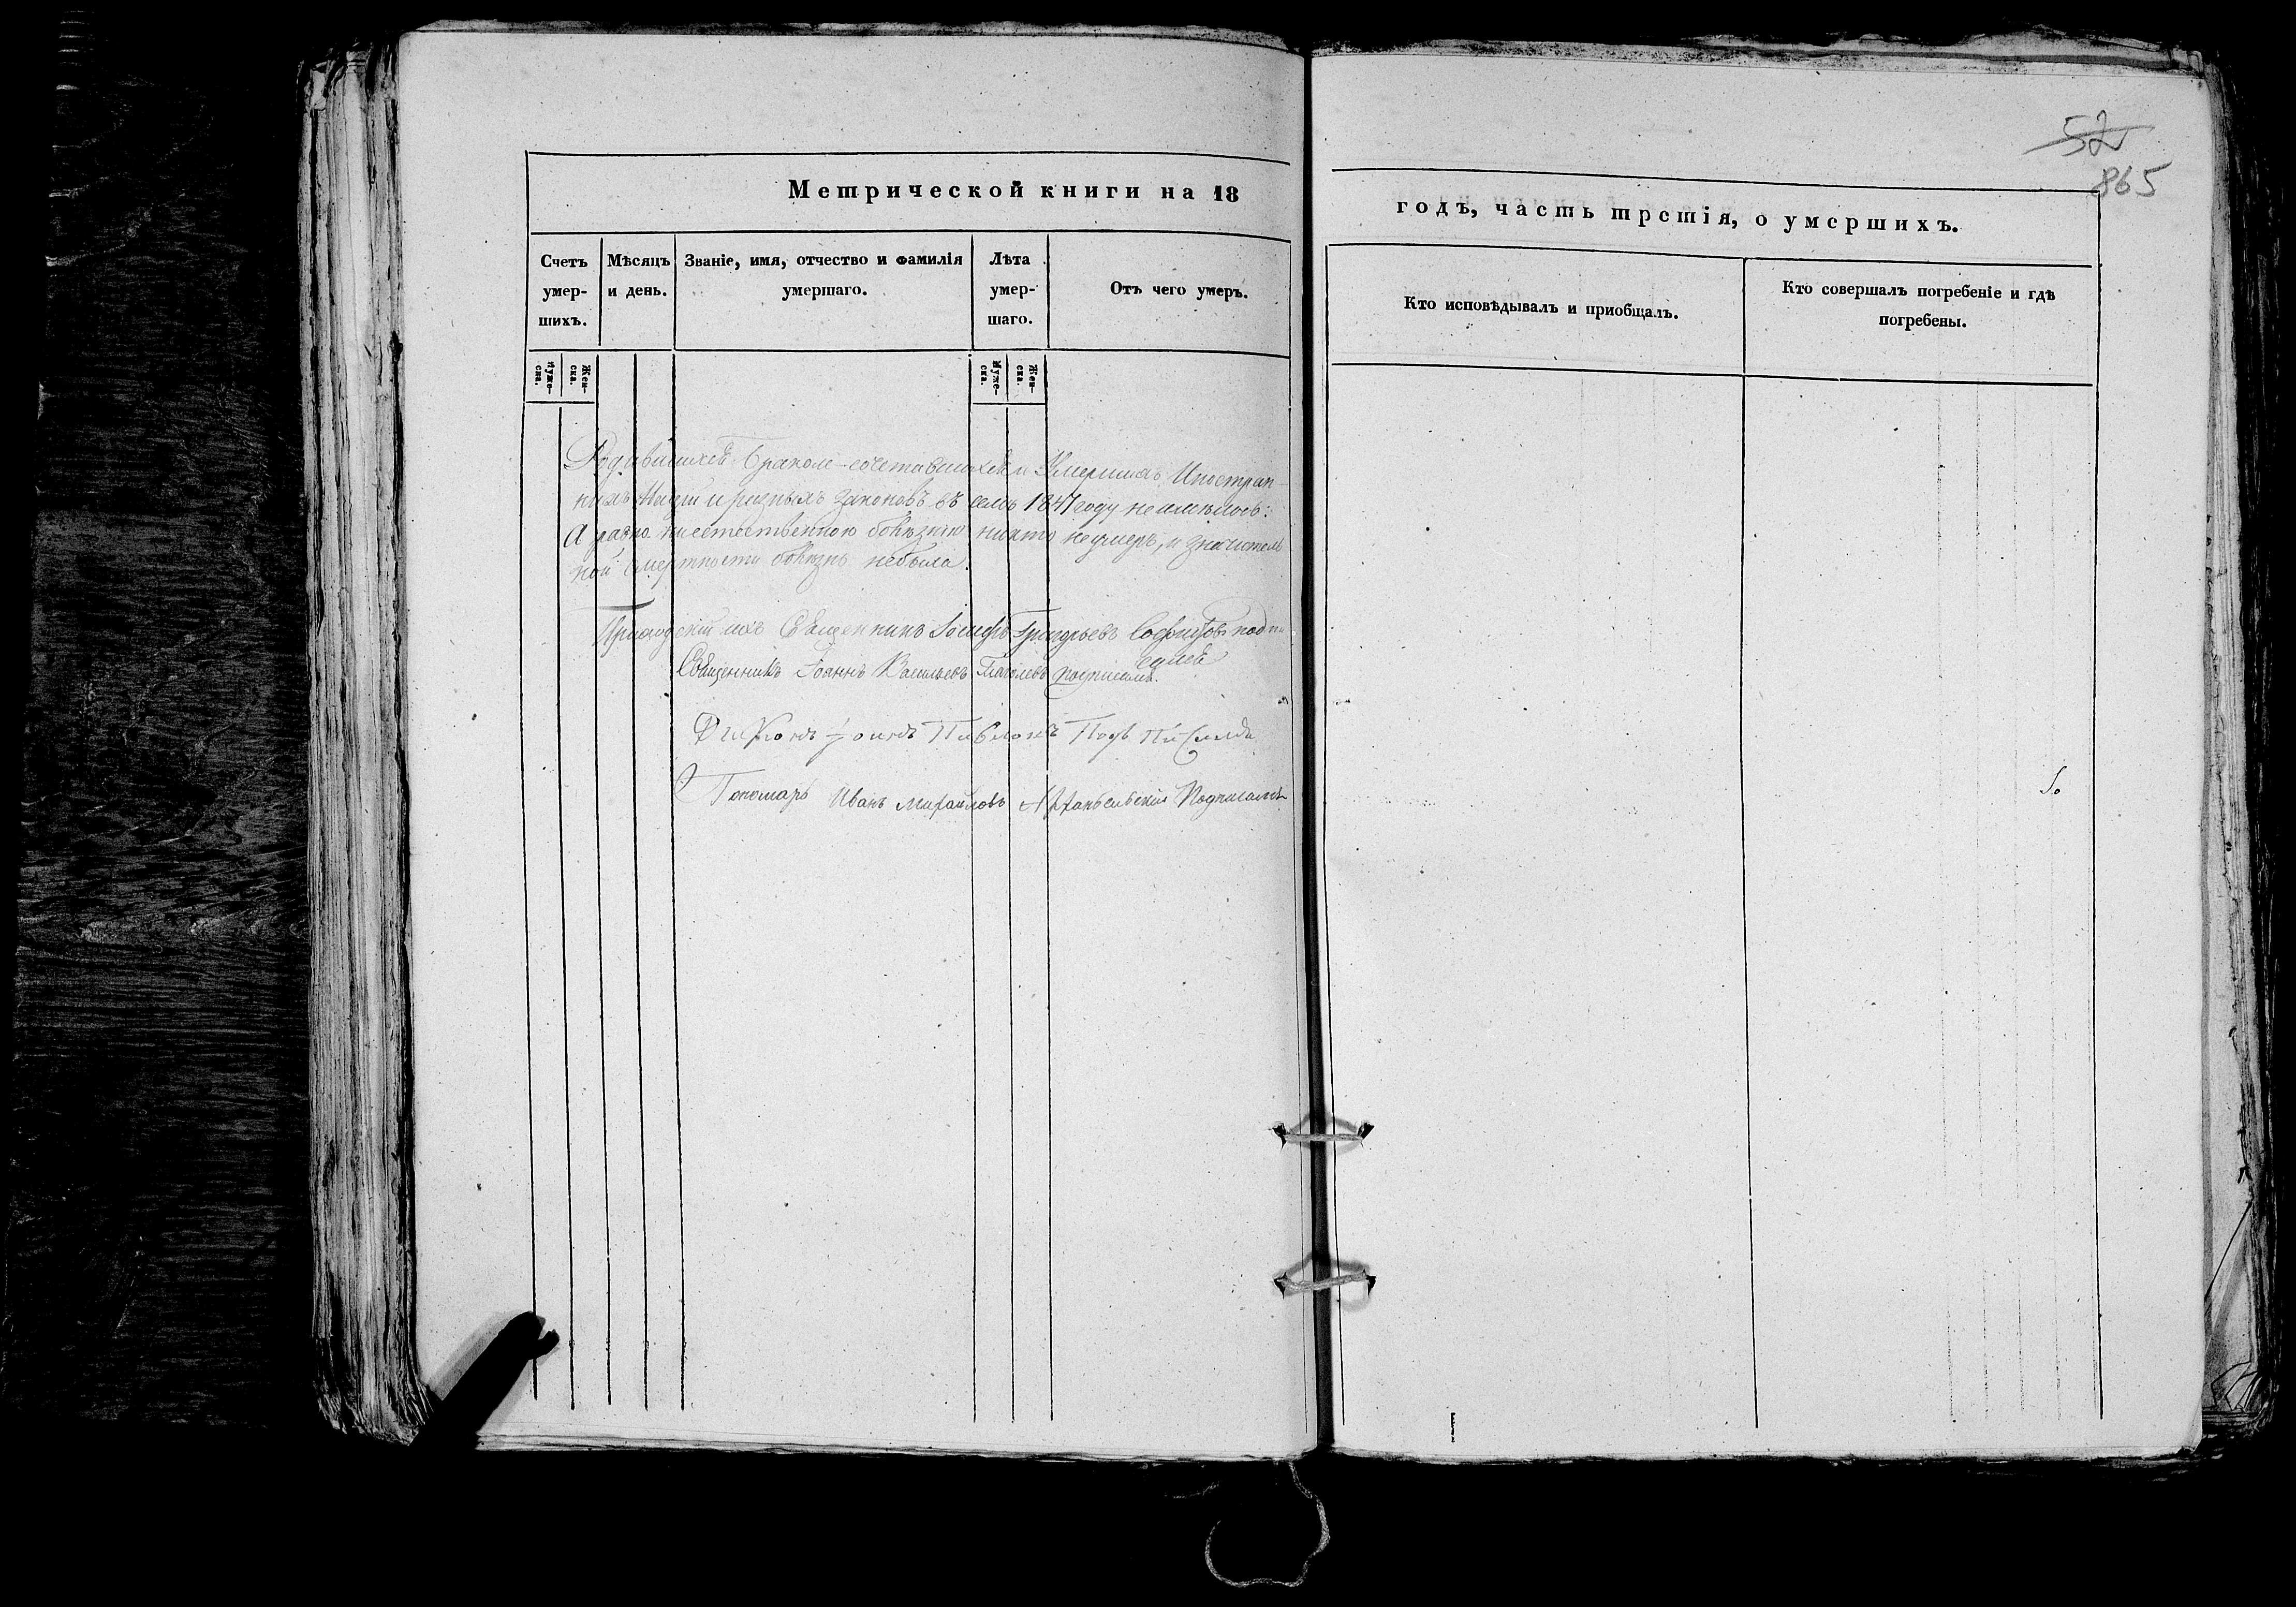 52
865
Метрической книги на 18
годъ, часть третія, о умершихъ.
Счетъ умер-шихъ.
Мѣсяцъ и день.
Званіе, имя, отчество и фамилія умершаго.
Лѣта умер-шаго.
Отъ чего умеръ.
Кто исповѣдывалъ и пріобщалъ.
Кто совершалъ погребеніе и гдѣ погребены.
Муже-ска.
Жен-ска.
Муже-ска.
Жен-ска.
Родившихся Бракомъ сочетавшихся и Умершихъ Иностран-
ныхъ Націй и разныхъ законовъ въ семъ 1847 году неимѣлось:
А равно неестественною болѣзнію никто неумеръ, и значитель
ной смертности болѣзнь небыла.
Приходскій Священникъ Іосифъ Григорьевъ подпи
сался
Священникъ Іоаннъ Васильевъ подписался.
Діяконъ Іоанъ Павловъ Подъ писался
Пономарь Иванъ Михайловъ Архангельский Подписался